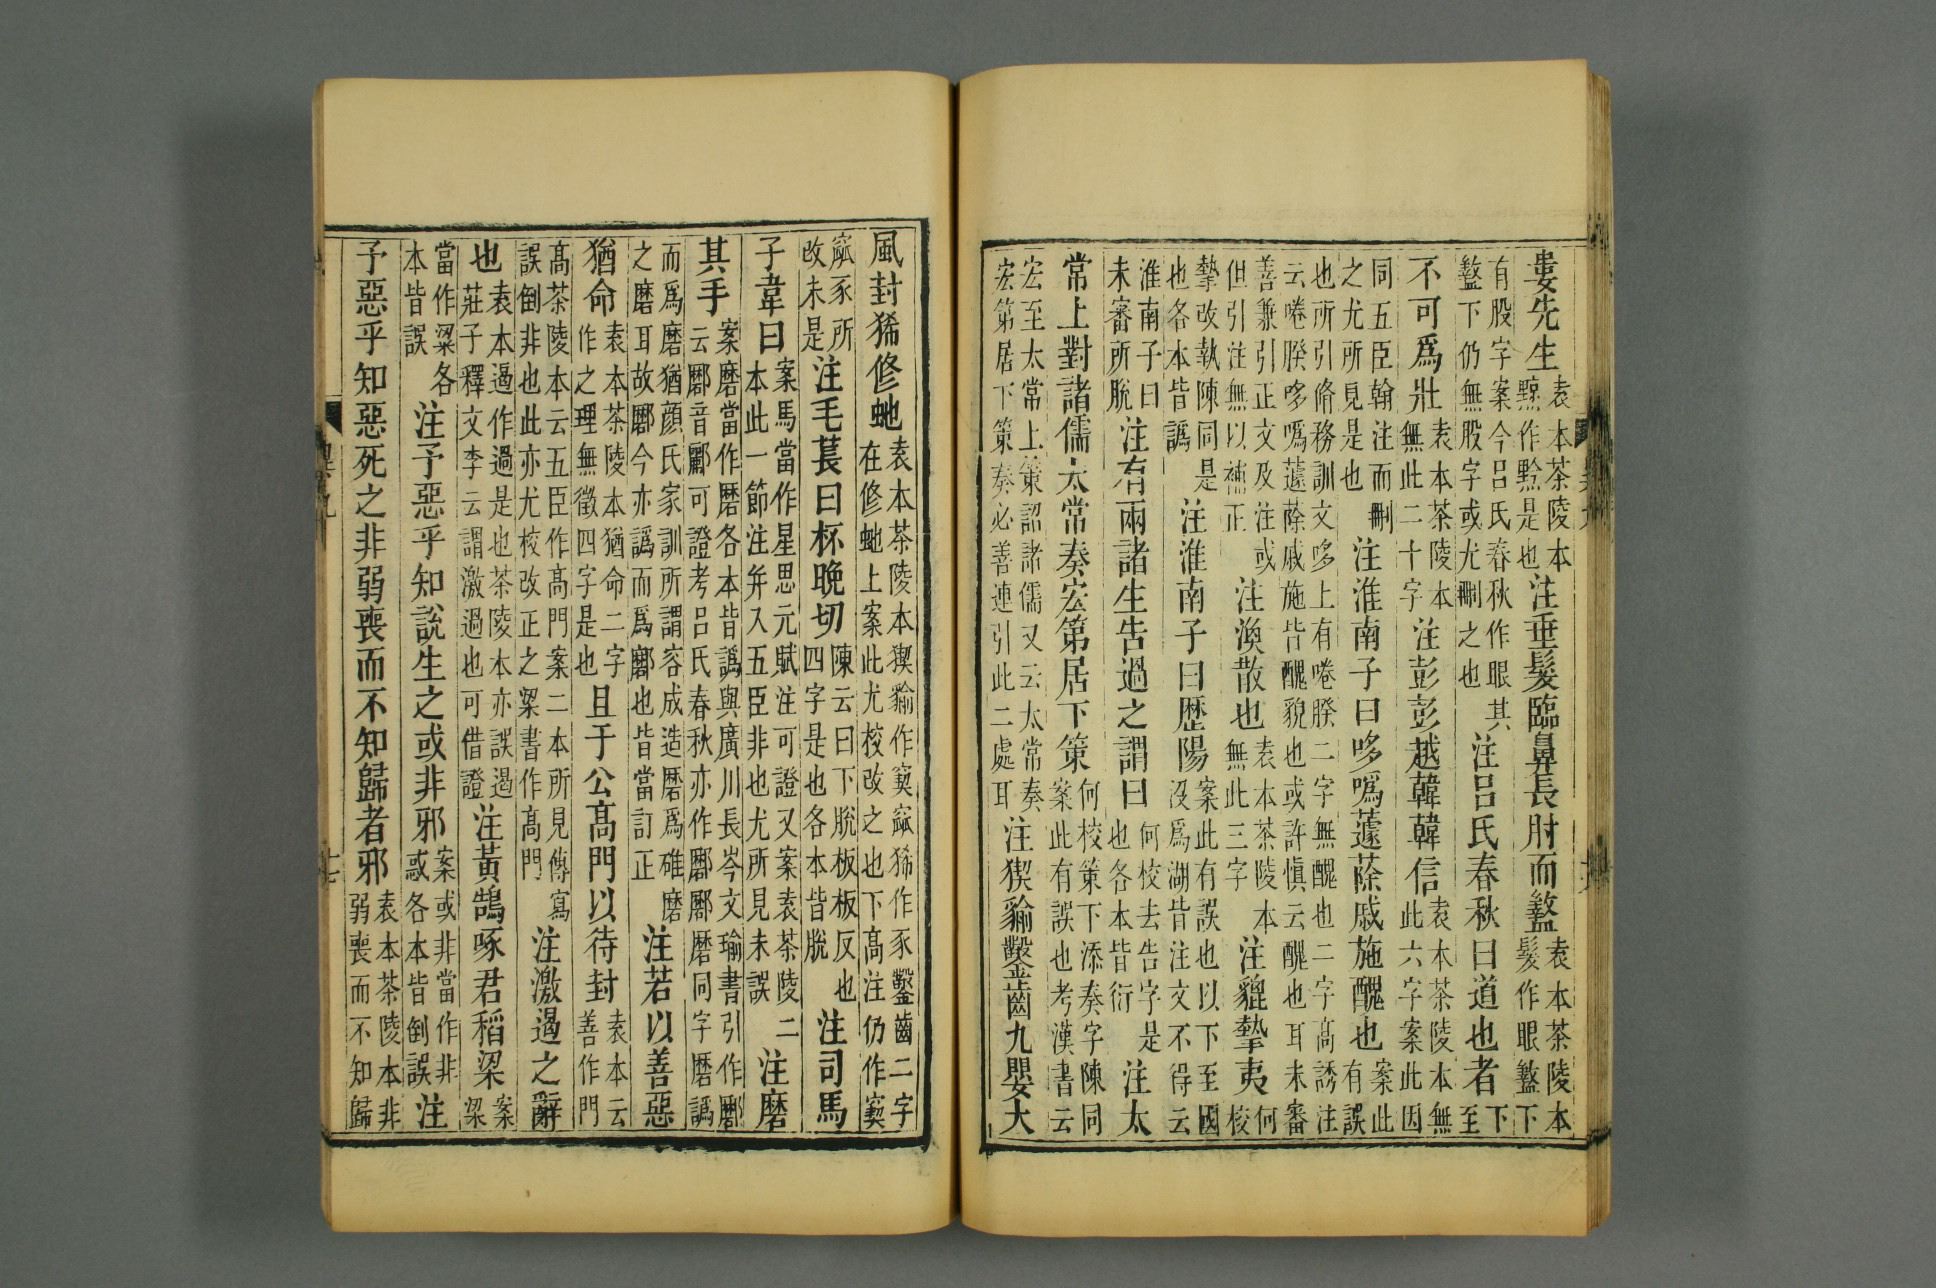 婁先生袁本茶陵本黥作黔是也注垂髮臨鼻長肘而盭袁本茶陵本髮作眼盭下
有股字案今呂氏春秋作眼其盭下仍無股字或尤刪之也注呂氏春秋曰道也者下至
不可爲壯袁本茶陵本無此二十字注彭彭越韓韓信袁本茶陵本無此六字案此因
同五臣翰注而刪之尤所見是也注淮南子曰哆噅蘧蒢戚施醜也案此有誤
也所引脩務訓文哆上有啳䐡二字無醜也二字高誘注云啳䐡哆噅蘧蒢戚施皆醜貌也或許愼云醜也耳未審
善兼引正文及注或但引注無以補正注渙散也袁本茶陵本無此三字注貔摯夷何校
摯改執陳同是也各本皆譌注淮南子曰歷陽案此有誤也以下至國沒爲湖皆注文不得云
淮南子曰未審所脫注有兩諸生告過之謂曰何校去告字是也各本皆衍注太
常上對諸儒太常奏宏第居下策何校策下添奏字陳同案此有誤也考漢書云
宏至太常上策詔諸儒又云太常奏宏第居下策奏必善連引此二處耳注猰貐鑿齒九嬰大
風封豨修虵袁本茶陵本猰貐作窫窳豨作豕鑿齒二字在修虵上案此尤校改之也下高注仍作窫
窳豕所改未是注毛萇曰板晚切陳云曰下脫板板反也四字是也各本皆脫注司馬
子韋曰案馬當作星思元賦注可證又案袁茶陵二本此一節注并入五臣非也尤所見未誤注磨
其手案磨當作磿各本皆譌與廣川長岑文瑜書引作酈云酈音酈可證考呂氏春秋亦作酈酈磿同字磨譌
而爲磨猶顏氏家訓所謂容成造磿爲碓磨之磨耳故酈今亦譌而爲鄜也皆當訂正注若以善惡
猶命袁本茶陵本猶命二字作之理無徵四字是也且于公高門以待封袁本云善作門
高茶陵本云五臣作高門案二本所見傳寫誤倒非也此亦尤校改正之梁書作高門注激遏之辭
也袁本遏作過是也茶陵本亦誤遏莊子釋文李云謂激過也可借證注黃鵠啄君稻梁案梁
當作粱各本皆誤注予惡乎知說生之或非邪案或非當作非或各本皆倒誤注
予惡乎知惡死之非弱喪而不知歸者邪袁本茶陵本非弱喪而不知歸